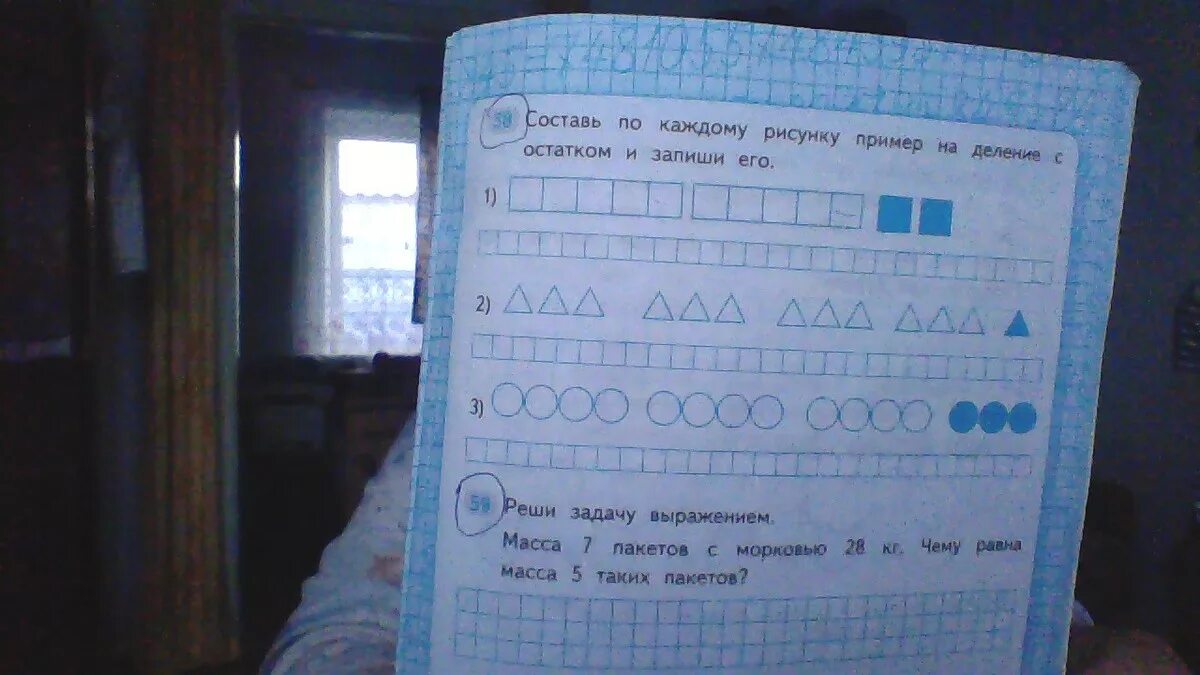 58 Составь по каждому рисунку пример на деление с
остатком и запиши его.
1)
2)
3)
59 Реши задачу выражением.
Масса 7 пакетов с морковью 28 кг. Чему равна
масса 5 таких пакетов?